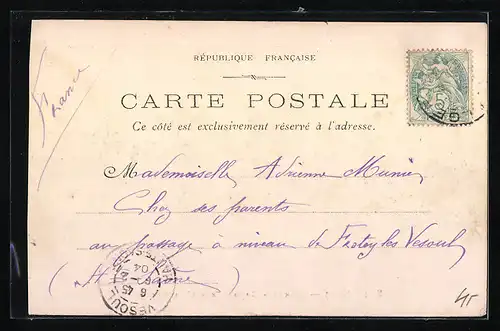 RÉPUBLIQUE FRANÇAISE
France
CARTE POSTALE
Ce côté est exclusivement réservé à l'adresse.
Mademoiselle Adrienne Munier
Chez ses parents
au passage à niveau de Frotey les Vesoul
(Hte Saône)
VESOUL
6 45
04